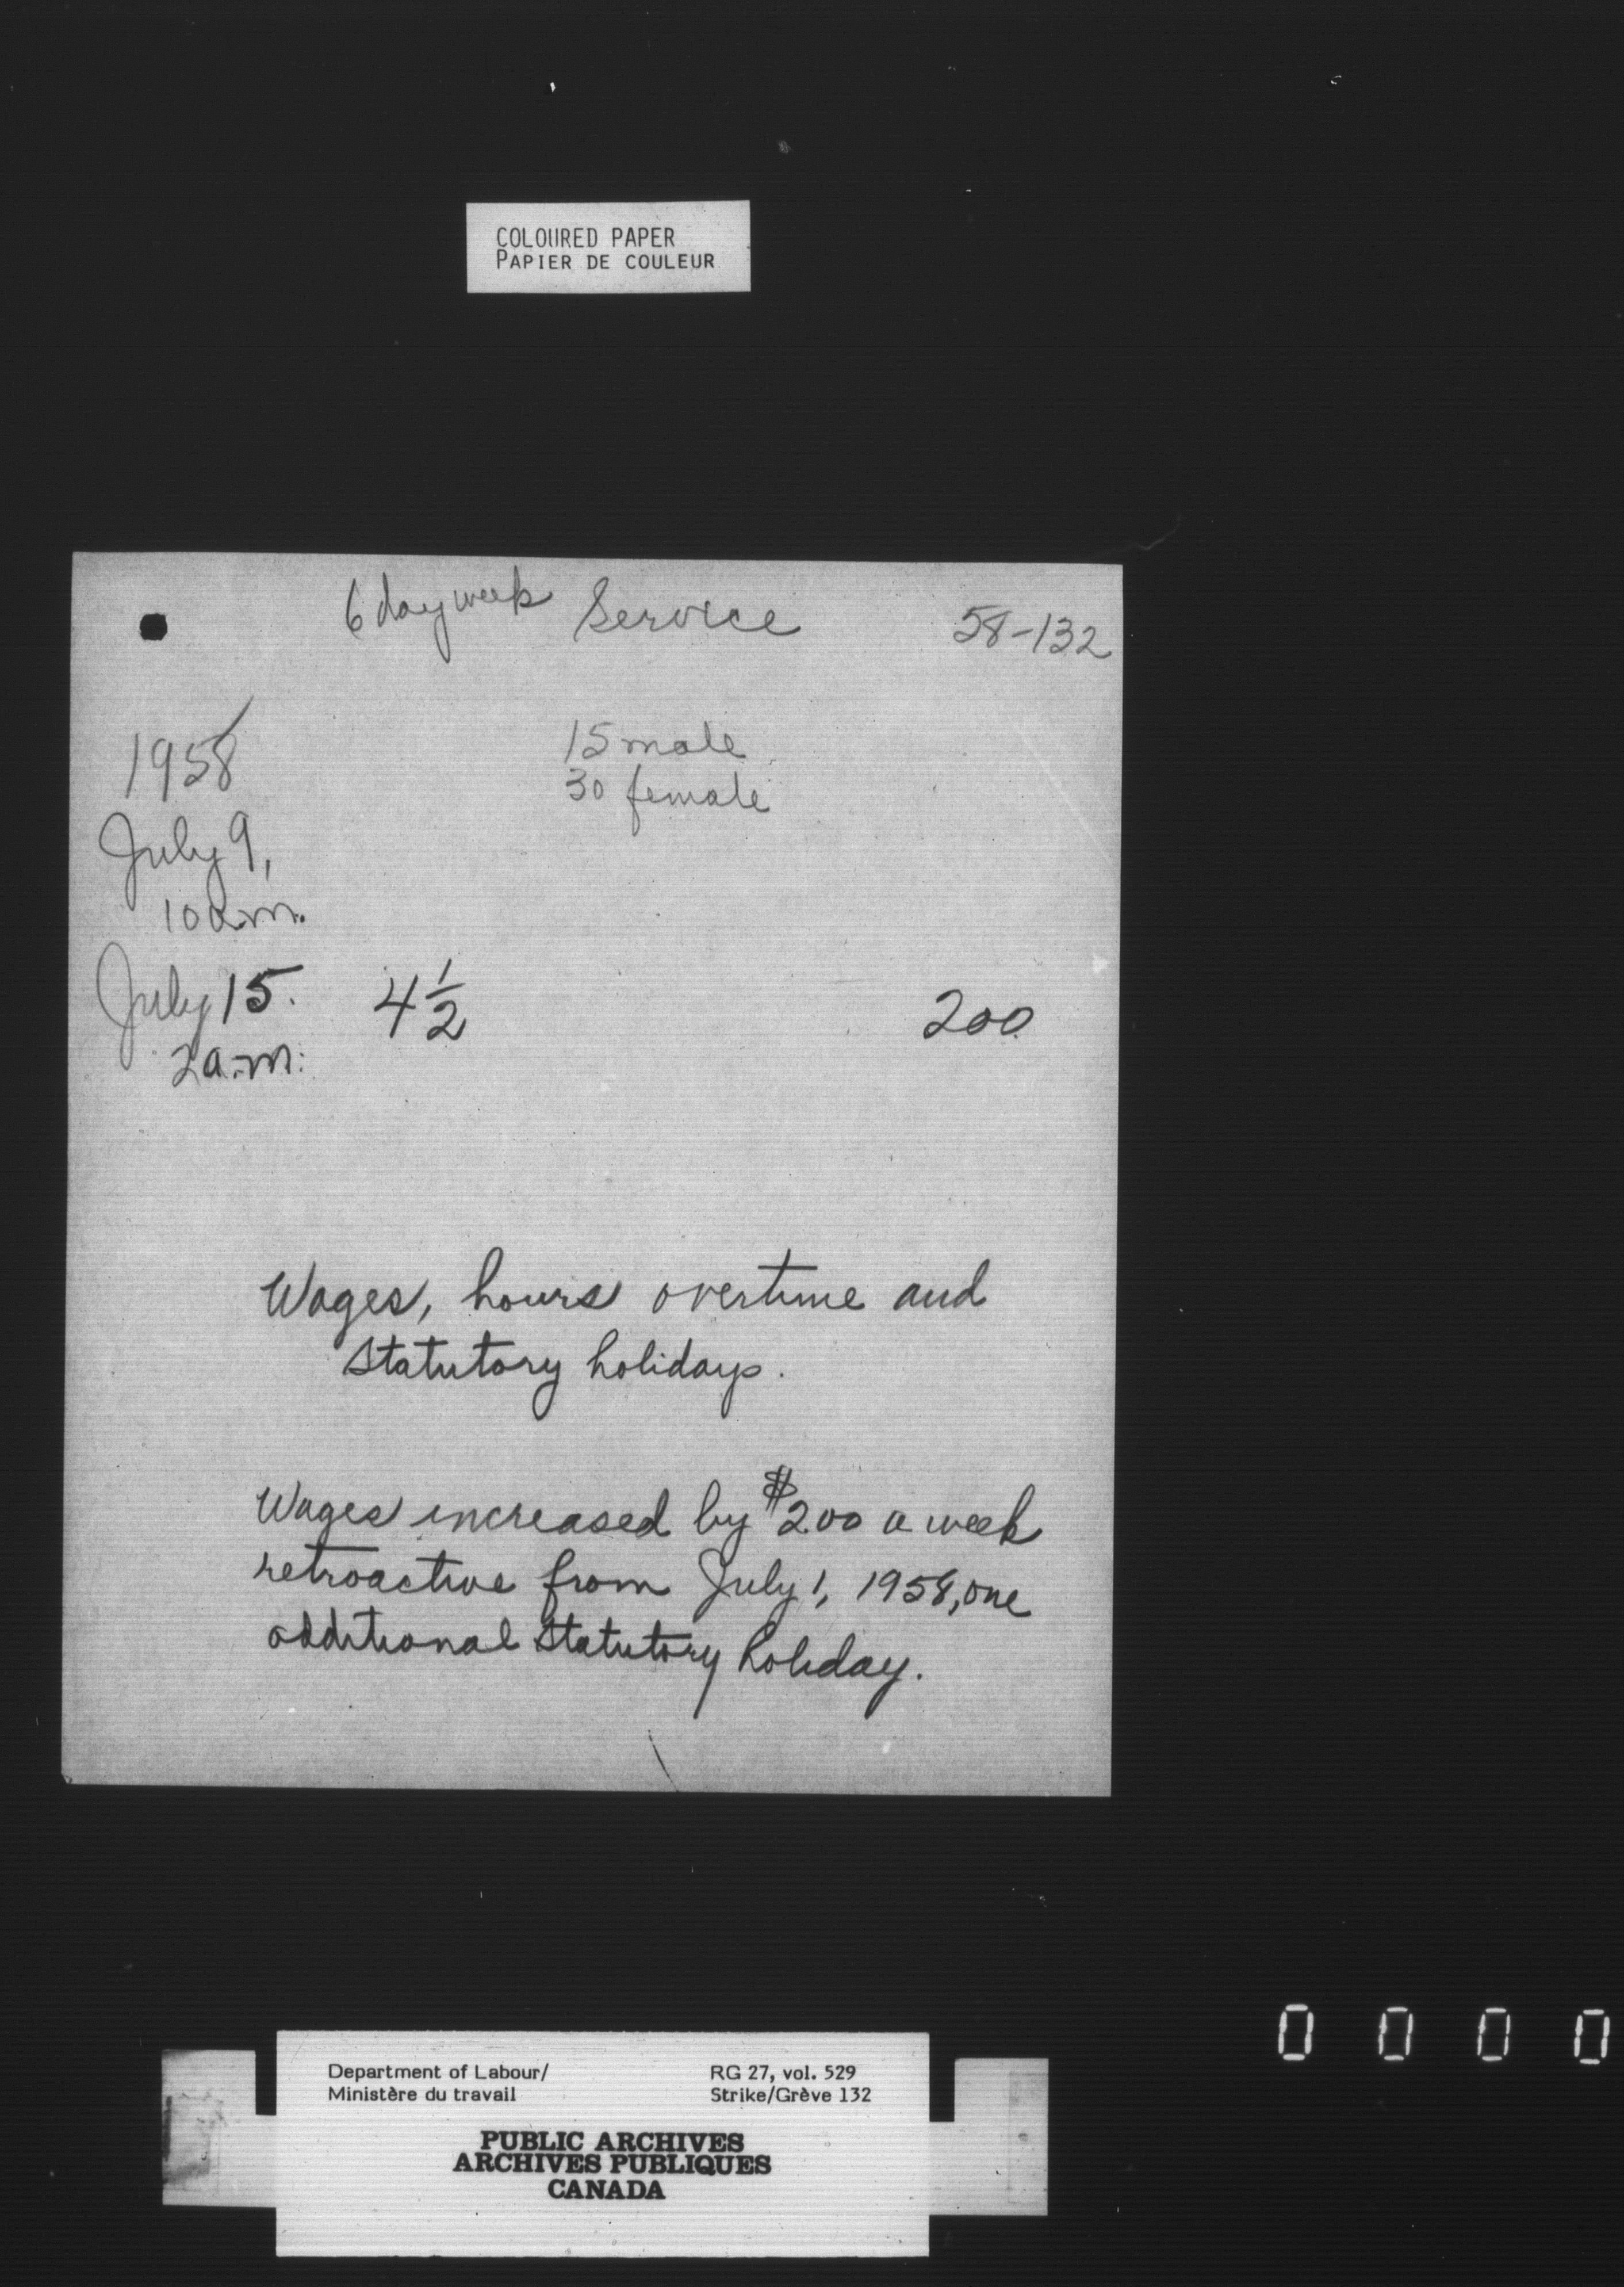 COLOURED PAPER
PAPIER DE COULEUR
6 day week Service 58-132
1958
15 male
30 female
July 9,
10 a.m.
July 15. 4 1/2 200
2 a.m.
Wages, hours overtime and
statutory holidays.
Wages increased by $2.00 a week
retroactive from July 1, 1958, one
additional statutory holiday.
0 0 0 0
Department of Labour/ RG 27, vol. 529
Ministère du travail Strike/Grève 132
PUBLIC ARCHIVES
ARCHIVES PUBLIQUES
CANADA